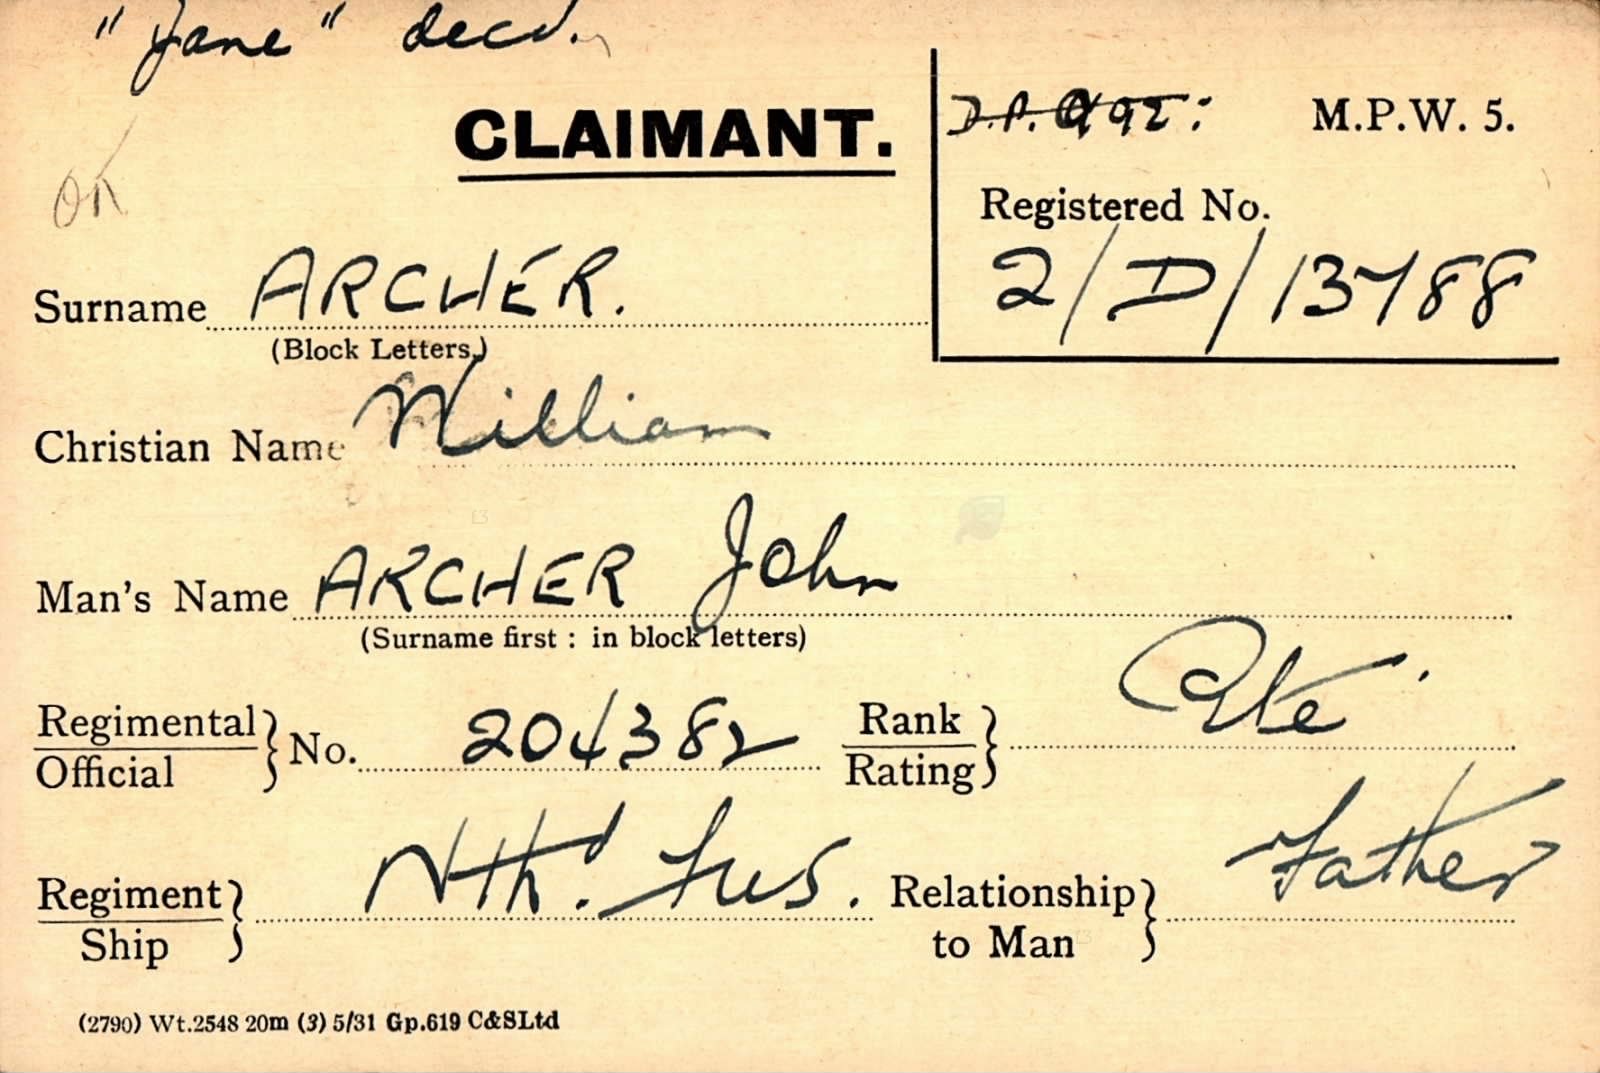 "Jane" decd.
CLAIMANT.
D.P. 992:
M.P.W. 5.
OK
Registered No.
2/D/13788
Surname ARCHER.
(Block Letters.)
Christian Name William
Man's Name ARCHER John
(Surname first : in block letters)
Regimental
Official } No. 204382 Rank
Rating } Pte.
Regiment
Ship } Nthd. Fus. Relationship
to Man } Father
(2790) Wt.2548 20m (3) 5/31 Gp.619 C&SLtd